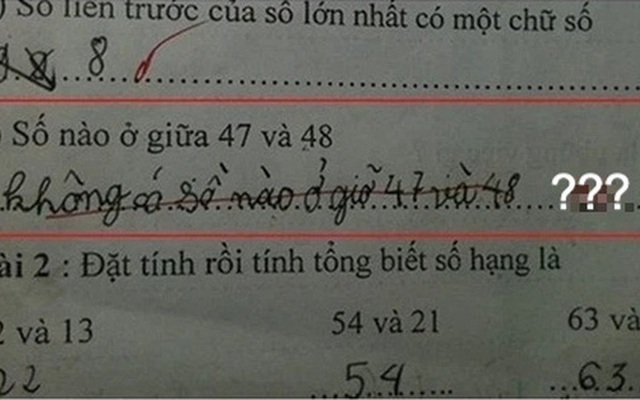 ) Số liền trước của số lớn nhất có một chữ số
8
) Số nào ở giữa 47 và 48
không có số nào ở giữ 47 và 48 ???
ài 2 : Đặt tính rồi tính tổng biết số hạng là
2 và 13 54 và 21 63 và
22 54 63